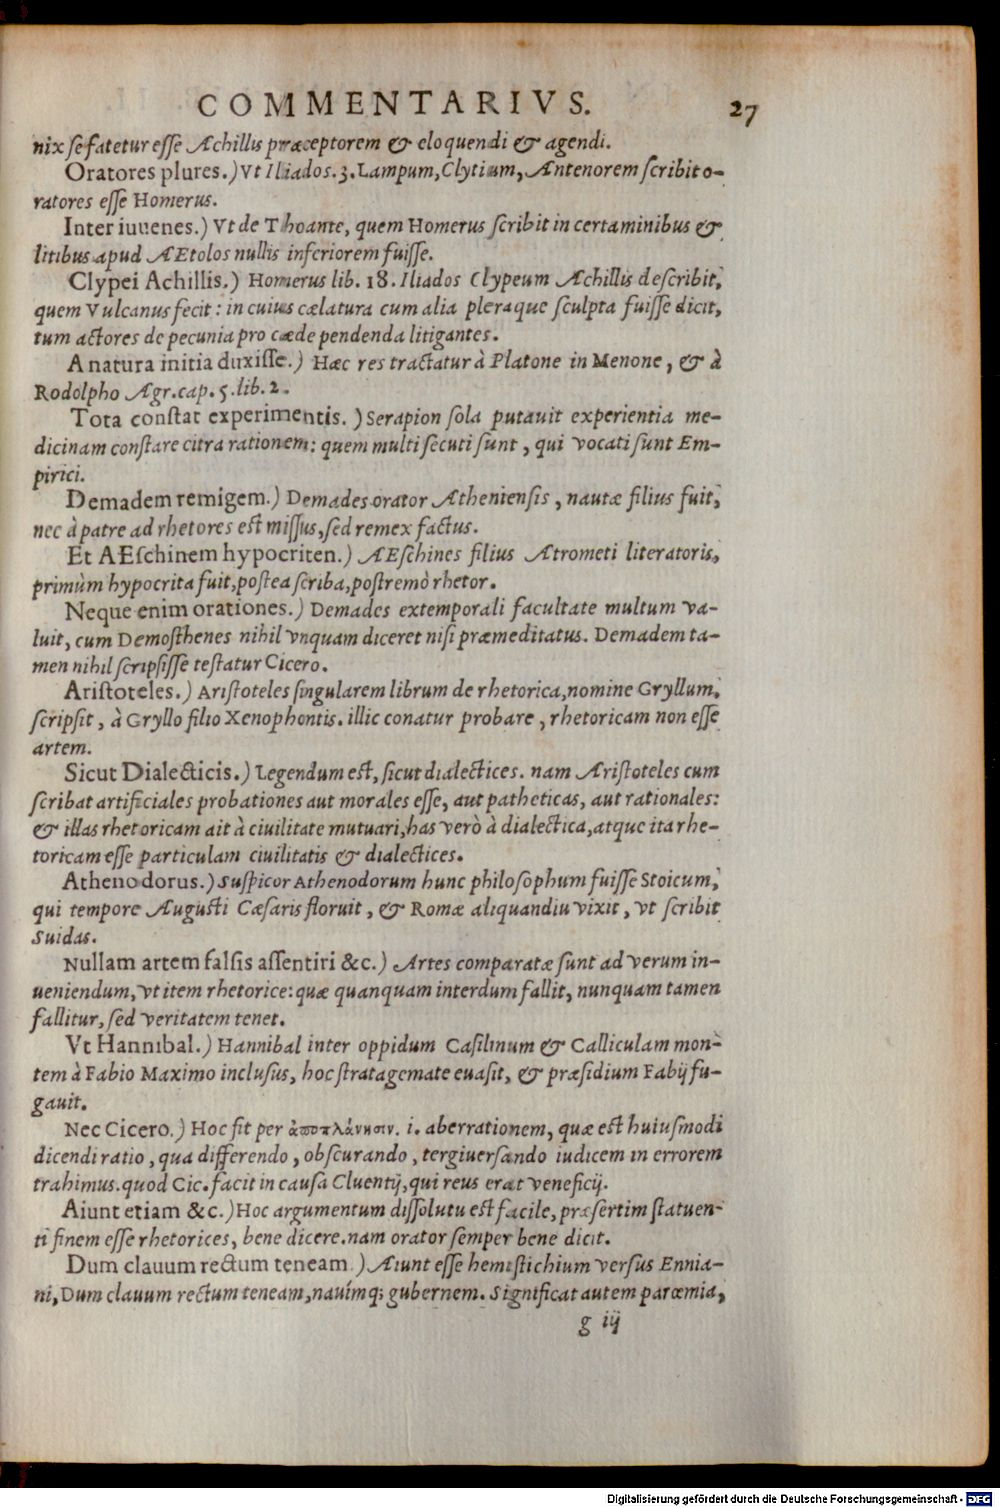 COMMENTARIVS. 27
nix se fatetur esse Achillis præceptorem & eloquendi & agendi.
Oratores plures.) Vt Iliados. 3. Lampum, Clytium, Antenorem scribit o-
ratores esse Homerus.
Inter iuuenes.) Vt de Thoante, quem Homerus scribit in certaminibus &
litibus apud AEtolos nullis inferiorem fuisse.
Clypei Achillis.) Homerus lib. 18. Iliados Clypeum Achillis describit,
quem Vulcanus fecit: in cuius cælatura cum alia pleraque sculpta fuisse dicit,
tum actores de pecunia pro cæde pendenda litigantes.
A natura initia duxisse.) Hæc res tractatur à Platone in Menone, & à
Rodolpho Agr. cap. 5. lib. 2.
Tota constat experimentis.) Serapion sola putauit experientia me-
dicinam constare citra rationem: quem multi secuti sunt, qui vocati sunt Em-
pirici.
Demadem remigem.) Demades orator Atheniensis, nautæ filius fuit,
nec à patre ad rhetores est missus, sed remex factus.
Et AEschinem hypocriten.) AEschines filius Atrometi literatoris,
primùm hypocrita fuit, postea scriba, postremò rhetor.
Neque enim orationes.) Demades extemporali facultate multum va-
luit, cum Demosthenes nihil vnquam diceret nisi præmeditatus. Demadem ta-
men nihil scripsisse testatur Cicero.
Aristoteles.) Aristoteles singularem librum de rhetorica, nomine Gryllum,
scripsit, à Gryllo filio Xenophontis. illic conatur probare, rhetoricam non esse
artem.
Sicut Dialecticis.) Legendum est, sicut dialectices. nam Aristoteles cum
scribat artificiales probationes aut morales esse, aut patheticas, aut rationales:
& illas rhetoricam ait à ciuilitate mutuari, has verò à dialectica, atque ita rhe-
toricam esse particulam ciuilitatis & dialectices.
Athenodorus.) Suspicor Athenodorum hunc philosophum fuisse Stoicum,
qui tempore Augusti Cæsaris floruit, & Romæ aliquandiu vixit, vt scribit
Suidas.
Nullam artem falsis assentiri &c.) Artes comparatæ sunt ad verum in-
ueniendum, vt item rhetorice: quæ quanquam interdum fallit, nunquam tamen
fallitur, sed veritatem tenet.
Vt Hannibal.) Hannibal inter oppidum Casilinum & Calliculam mon-
tem à Fabio Maximo inclusus, hoc stratagemate euasit, & præsidium Fabij fu-
gauit.
Nec Cicero.) Hoc fit per ἀποπλάνησιν. i. aberrationem, quæ est huiusmodi
dicendi ratio, qua differendo, obscurando, tergiuersando iudicem in errorem
trahimus. quod Cic. facit in causa Cluentij, qui reus erat veneficij.
Aiunt etiam &c.) Hoc argumentum dissolutu est facile, præsertim statuen-
ti finem esse rhetorices, bene dicere. nam orator semper bene dicit.
Dum clauum rectum teneam.) Aiunt esse hemistichium versus Ennia-
ni, Dum clauum rectum teneam, nauímq; gubernem. Significat autem parœmia,
g iij
Digitalisierung gefördert durch die Deutsche Forschungsgemeinschaft - DFG